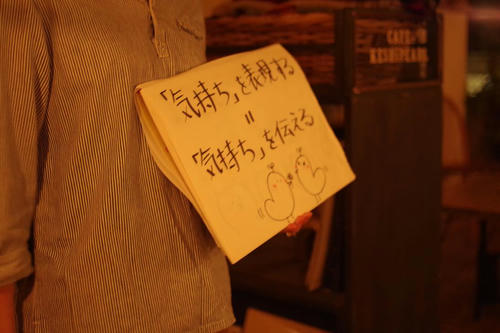 「気持ち」を表現する
=
「気持ち」を伝える